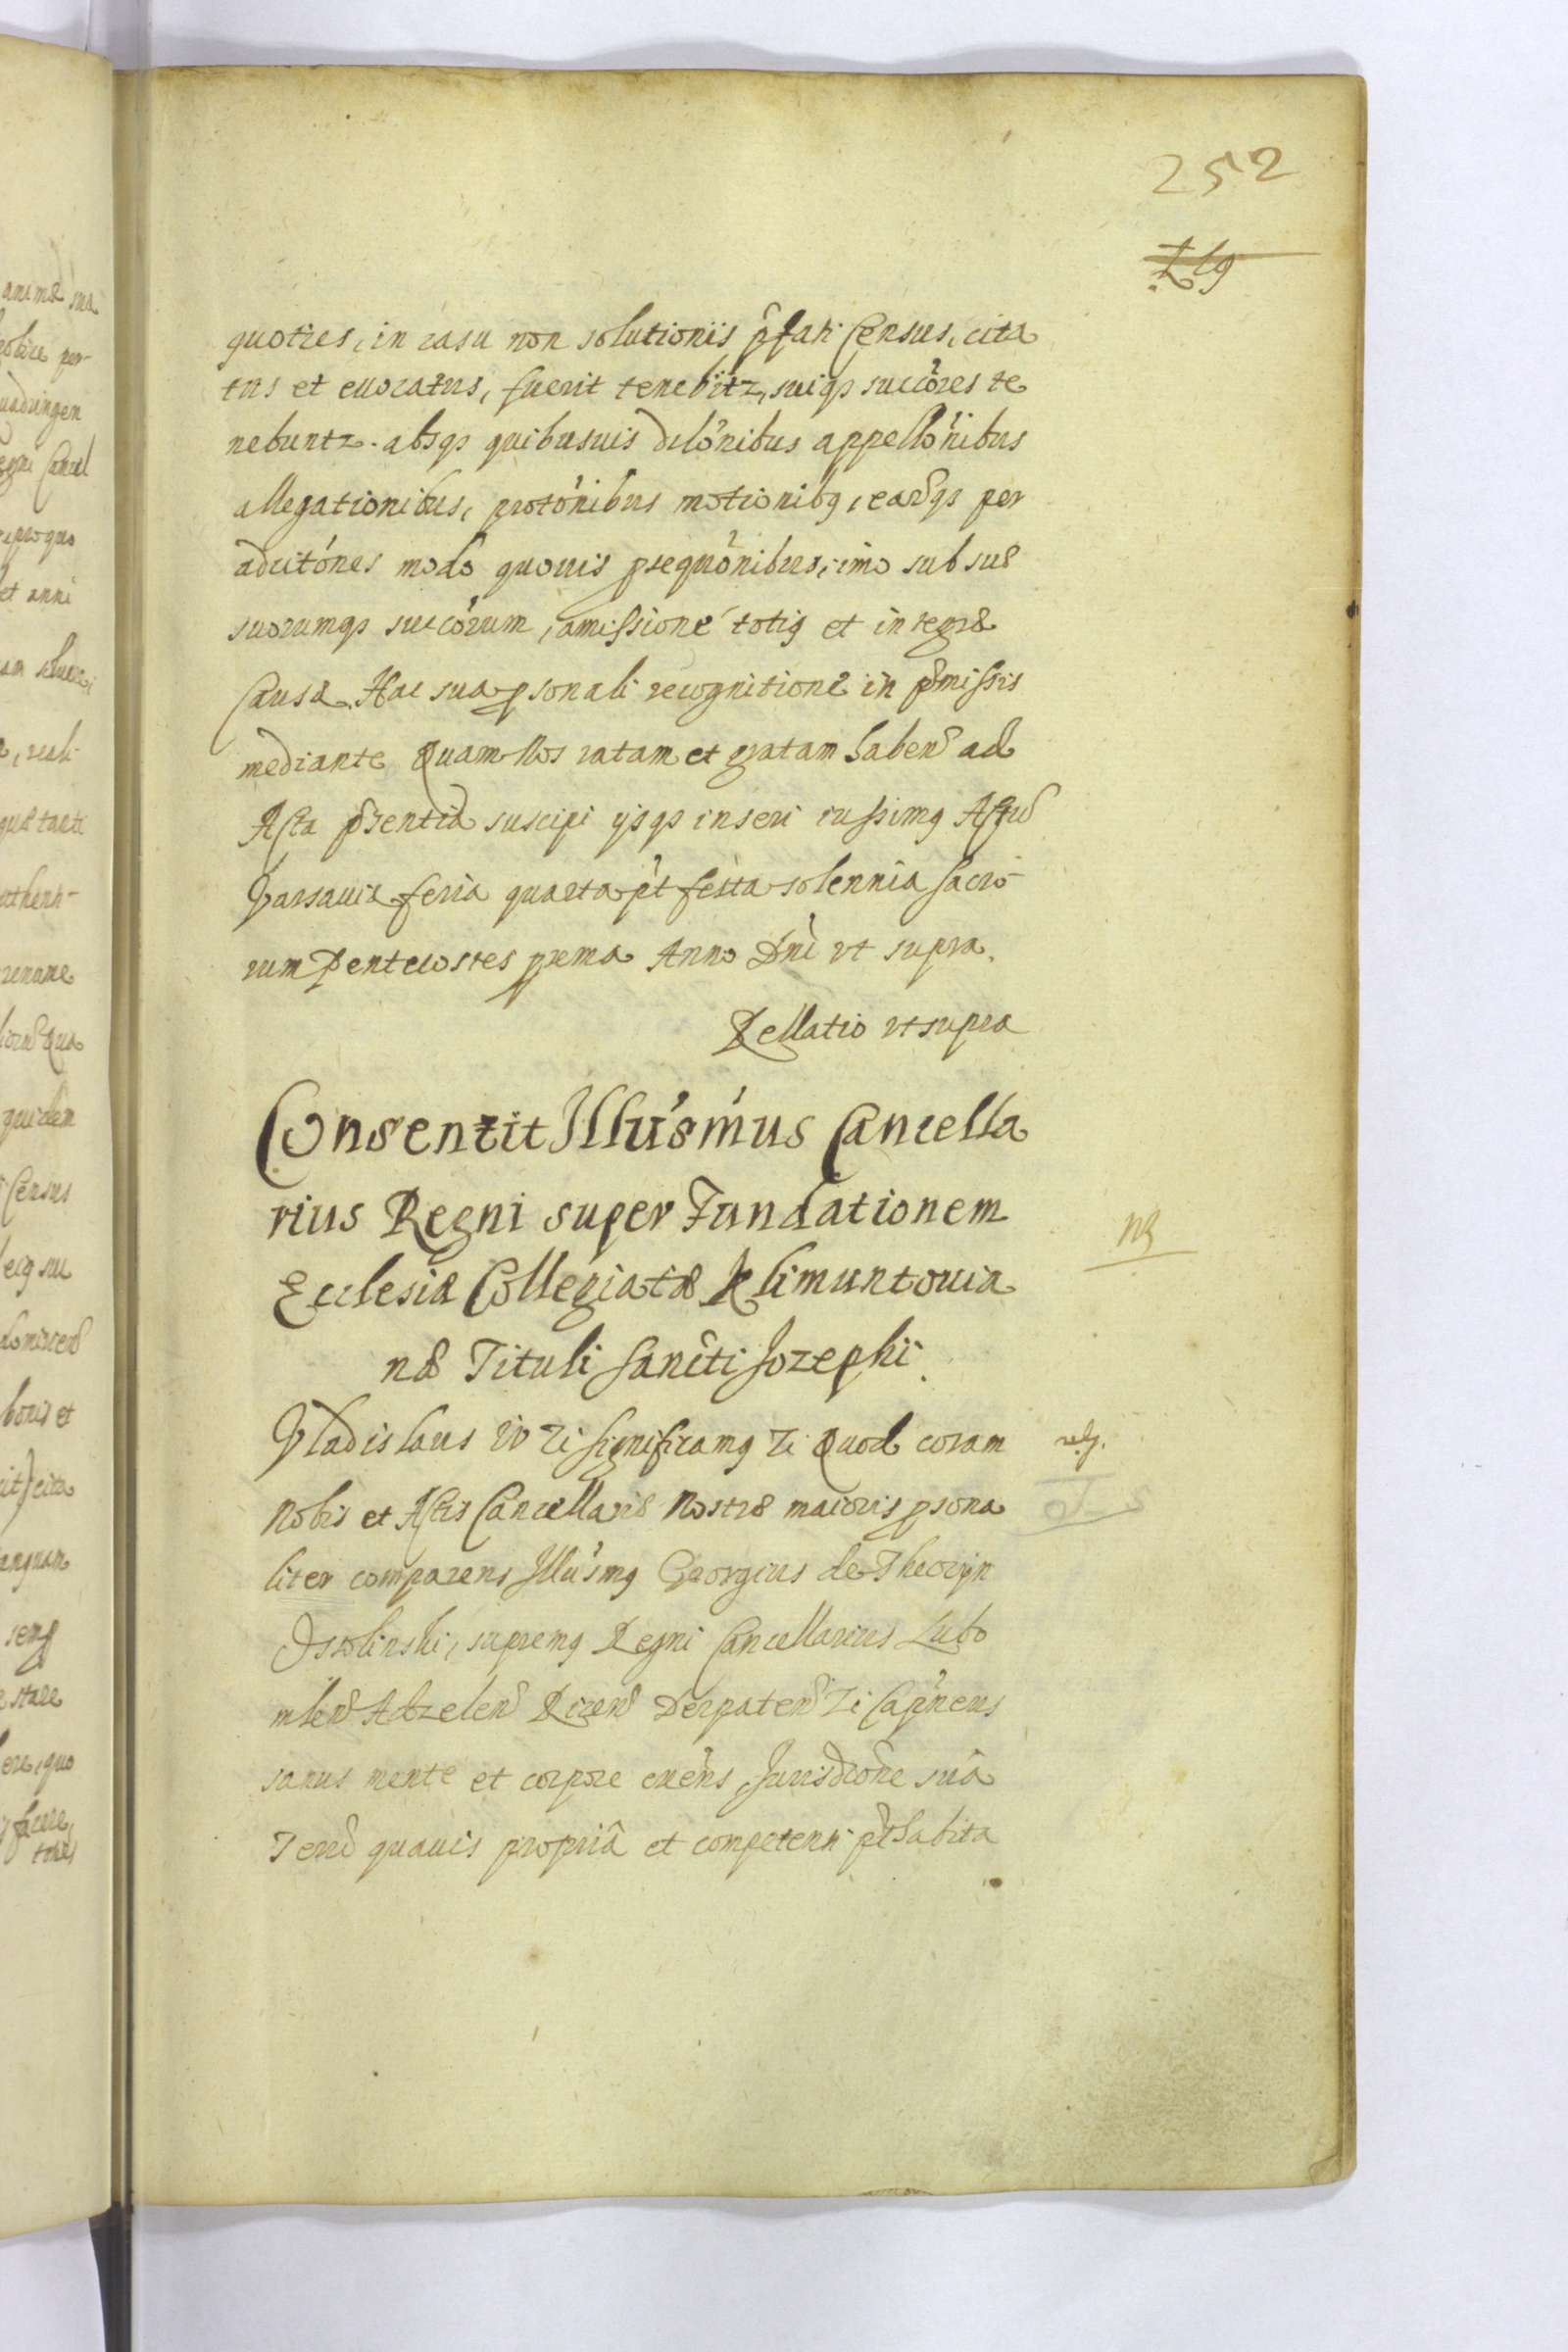 252
quoties, in casu non solutionis pfati Census, cita
tus et euocatus, fuerit tenebitr, suiqz succôres te
nebuntr. absqz quibusuis dilônibus appellônibus
allegationibus, protônibus motionibq, earûqz per
adcitónes modo quouis psequônibus, imo sub suæ
suorumqz succôrum, amissione totiq et integræ
Causæ. Hac sua psonali recognitione in pmissis
mediante Quam Nos ratam et gratam haben ad
Acta psentia suscipi ijsqz inseri iussimq Actu
Varsauiæ feria quarta pt festa solennia sacro
rum Pentecostes pxma Anno Dni vt supra.
Rellatio vt supra
Consentit Illu'smus Cancella
rius Regni super Fundationem
Ecclesiæ Collegiatæ Klimuntouia
næ Tituli Sancti Jozephi.
NB
Vladislaus IV Zi significamq Zi Quod coram
Nobis et Actis Cancellariæ Nostræ maioris psona
liter comparens Illu'smq Georgius de Theczÿn
Ossolinski, supremq Regni Cancellarius Lubo
mlen Adzelen Ricen Derpaten Zi Capneus
sanus mente et corpore exêns, Jurisdcône suâ
Terrû quauis propriâ et competenti pthabita